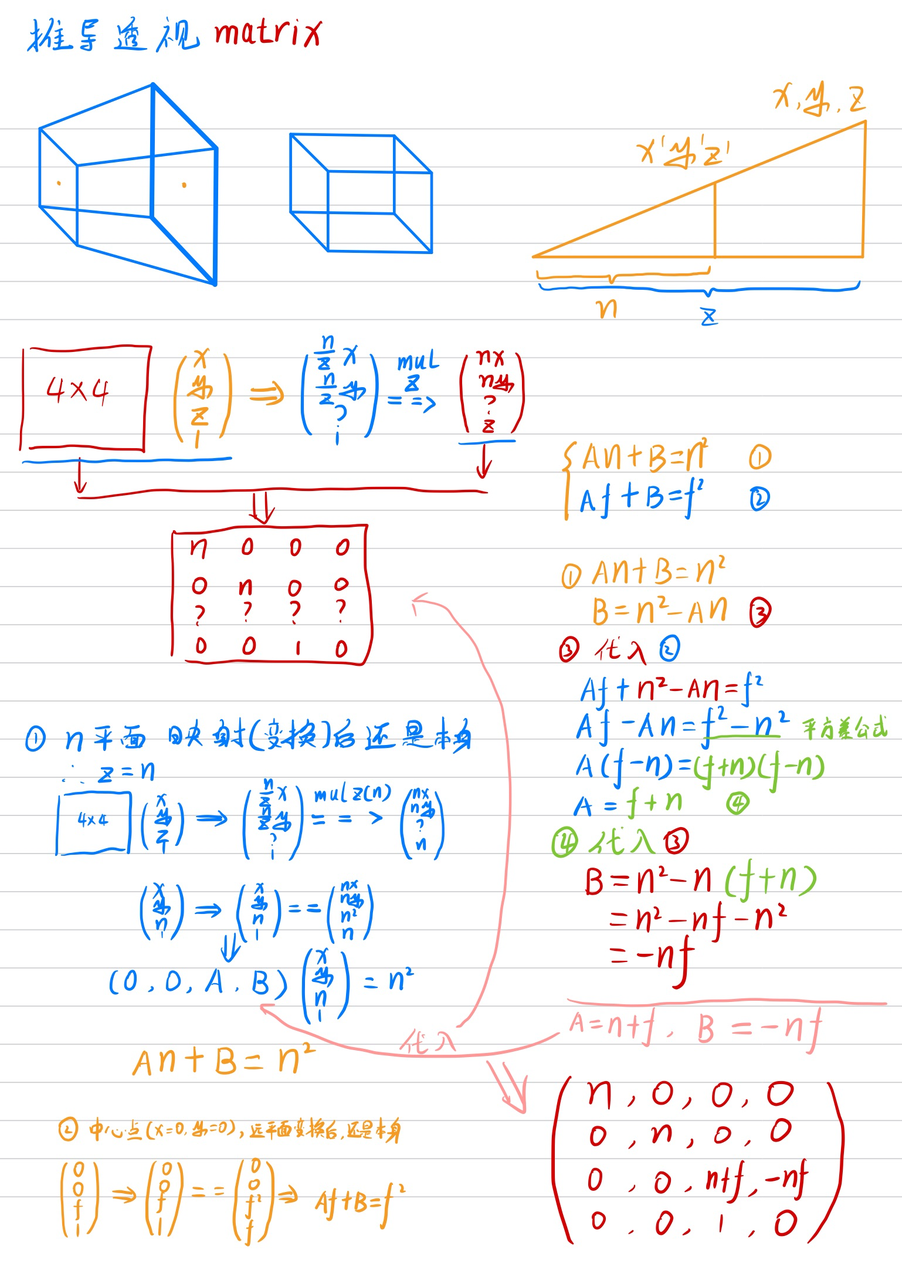 推导透视 matrix
x, y, z
x' y' z'
n
z
4×4 (x y z 1) ⇒ (n/z x n/z y ? 1) mul z ==> (nx ny ? z)
n 0 0 0
0 n 0 0
? ? ? ?
0 0 1 0
① n平面 映射(变换)后还是本身
∴ z = n
4×4 (x y z 1) ⇒ (n/z x n/z y ? 1) mul z(n) ==> (nx ny ? n)
(x y n 1) ⇒ (x y n 1) == (nx ny n² n)
⇓
(0, 0, A, B) (x y n 1) = n²
An + B = n²
② 中心点(x=0, y=0), 远平面变换后, 还是本身
(0 0 f 1) ⇒ (0 0 f 1) == (0 0 f² f) ⇒ Af+B=f²
{ An + B = n² ①
Af + B = f² ②
① An + B = n²
B = n² - An ③
③ 代入 ②
Af + n² - An = f²
Af - An = f² - n² 平方差公式
A(f-n) = (f+n)(f-n)
A = f+n ④
④ 代入 ③
B = n² - n(f+n)
= n² - nf - n²
= -nf
A=n+f, B = -nf
代入
n, 0, 0, 0
0, n, 0, 0
0, 0, n+f, -nf
0, 0, 1, 0